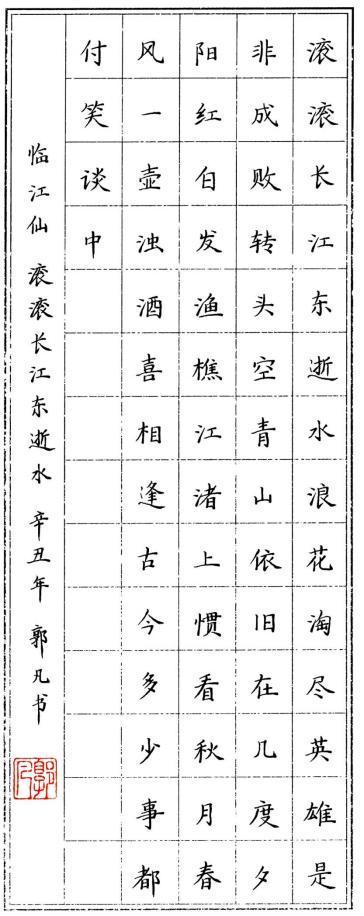 滚滚长江东逝水浪花淘尽英雄是
非成败转头空青山依旧在几度夕
阳红白发渔樵江渚上惯看秋月春
风一壶浊酒喜相逢古今多少事都
付笑谈中
临江仙 滚滚长江东逝水 辛丑年 郭凡书